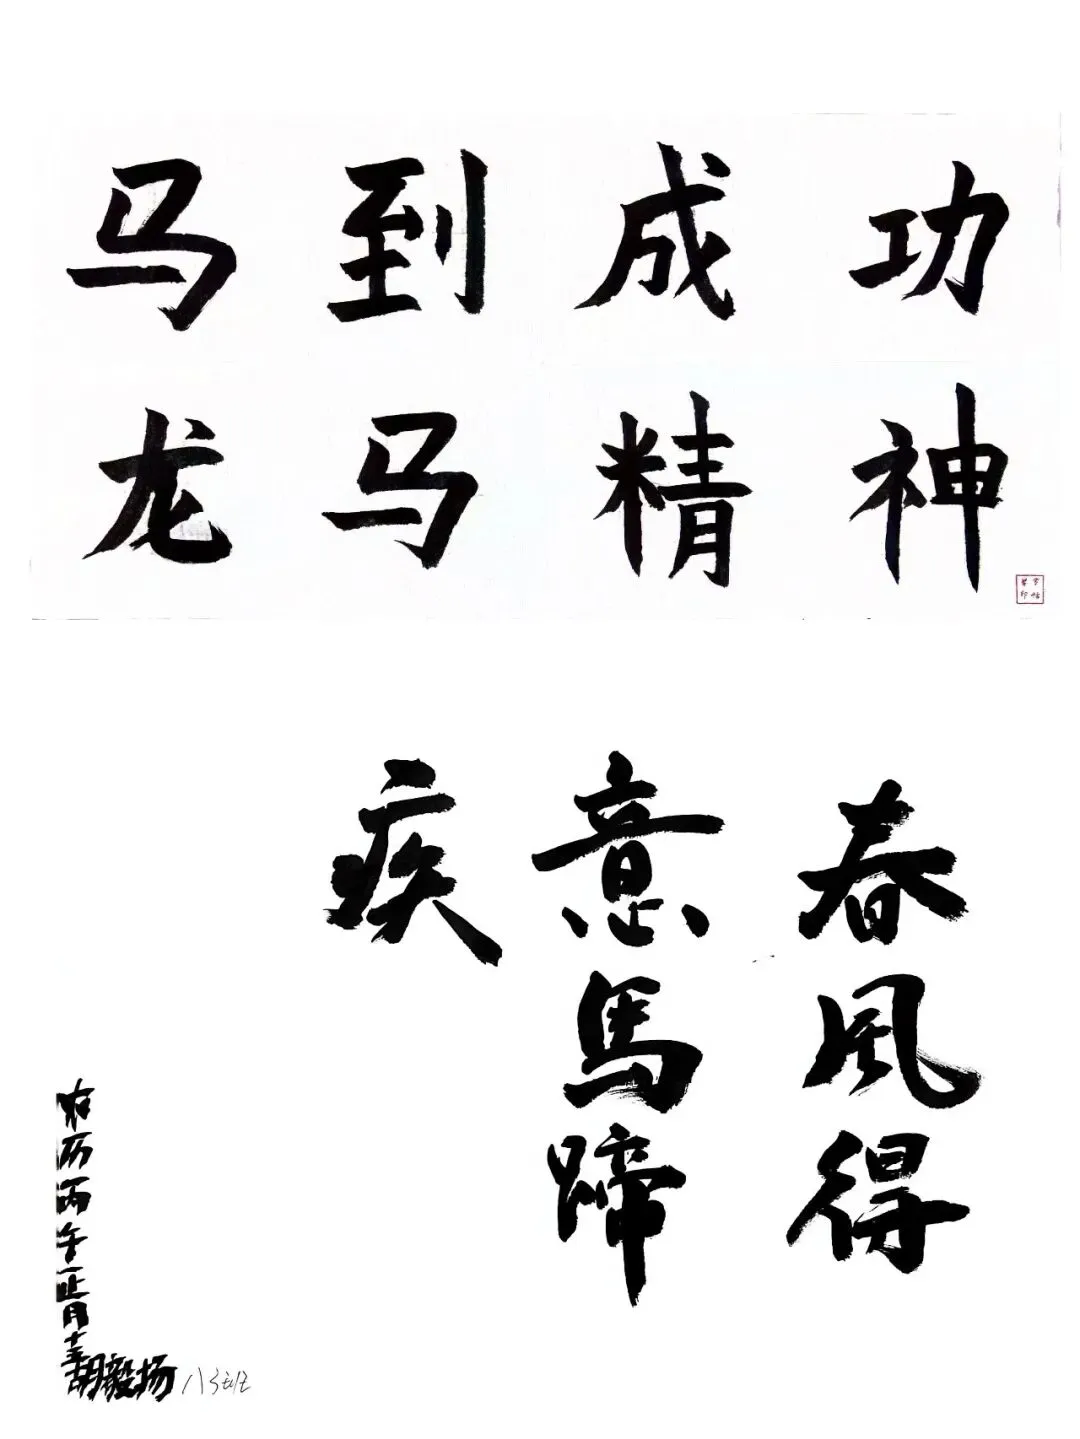 马到成功
龙马精神
春风得
意馬蹄
疾
农历丙午正月十三
胡毅扬